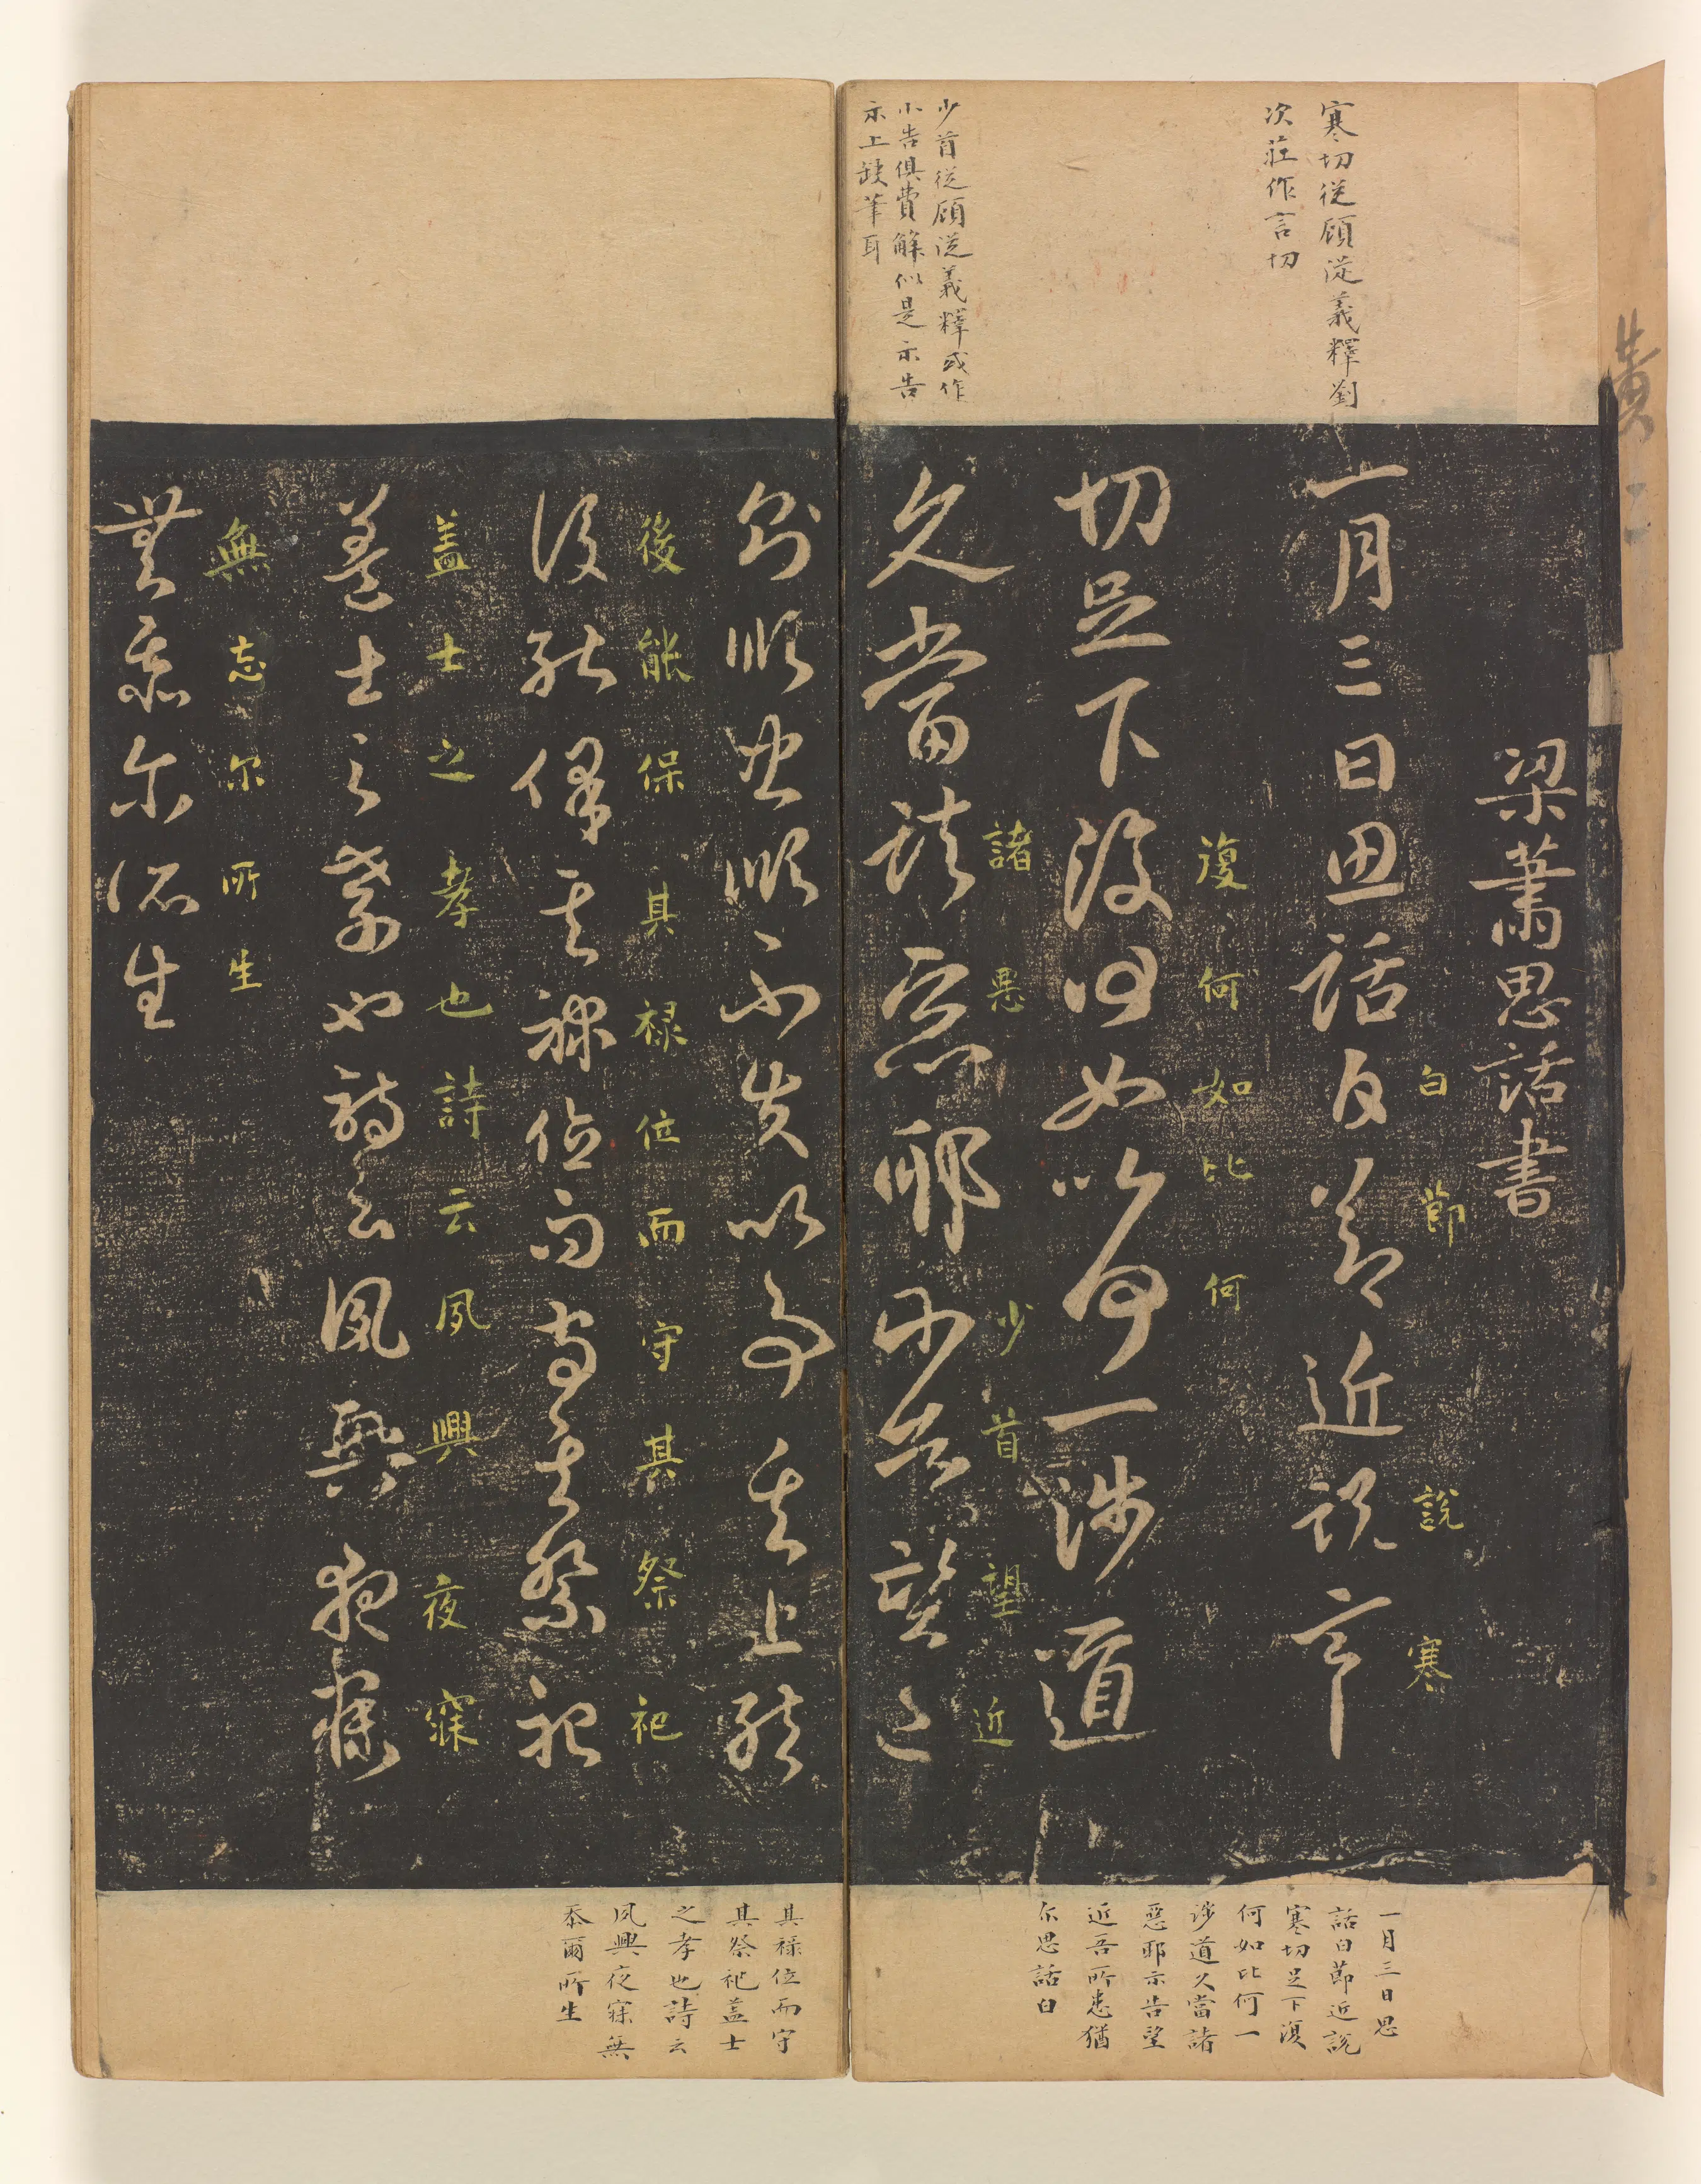 寒切從顧從義釋劉
次莊作言切
少首從顧從義釋或作
小告俱費解似是示告
示上缺筆耳
梁蕭思話書
白節說寒
一月三日思話白節近說寒
復何如比何
切足下復何如比何一涉道
諸惡少首望近
久當諸惡耶少首望近
一月三日思
話白節近說
寒切足下復
何如比何一
涉道久當諸
惡耶示告望
近吾所患猶
尔思話白
則順忠順不失以事其上然
後能保其禄位而守其祭祀
後能保其禄位而守其祭祀
盖士之孝也詩云夙興夜寐
盖士之孝也詩云夙興夜寐
無忘尔所生
無忝尔所生
其禄位而守
其祭祀盖士
之孝也詩云
夙興夜寐無
忝爾所生